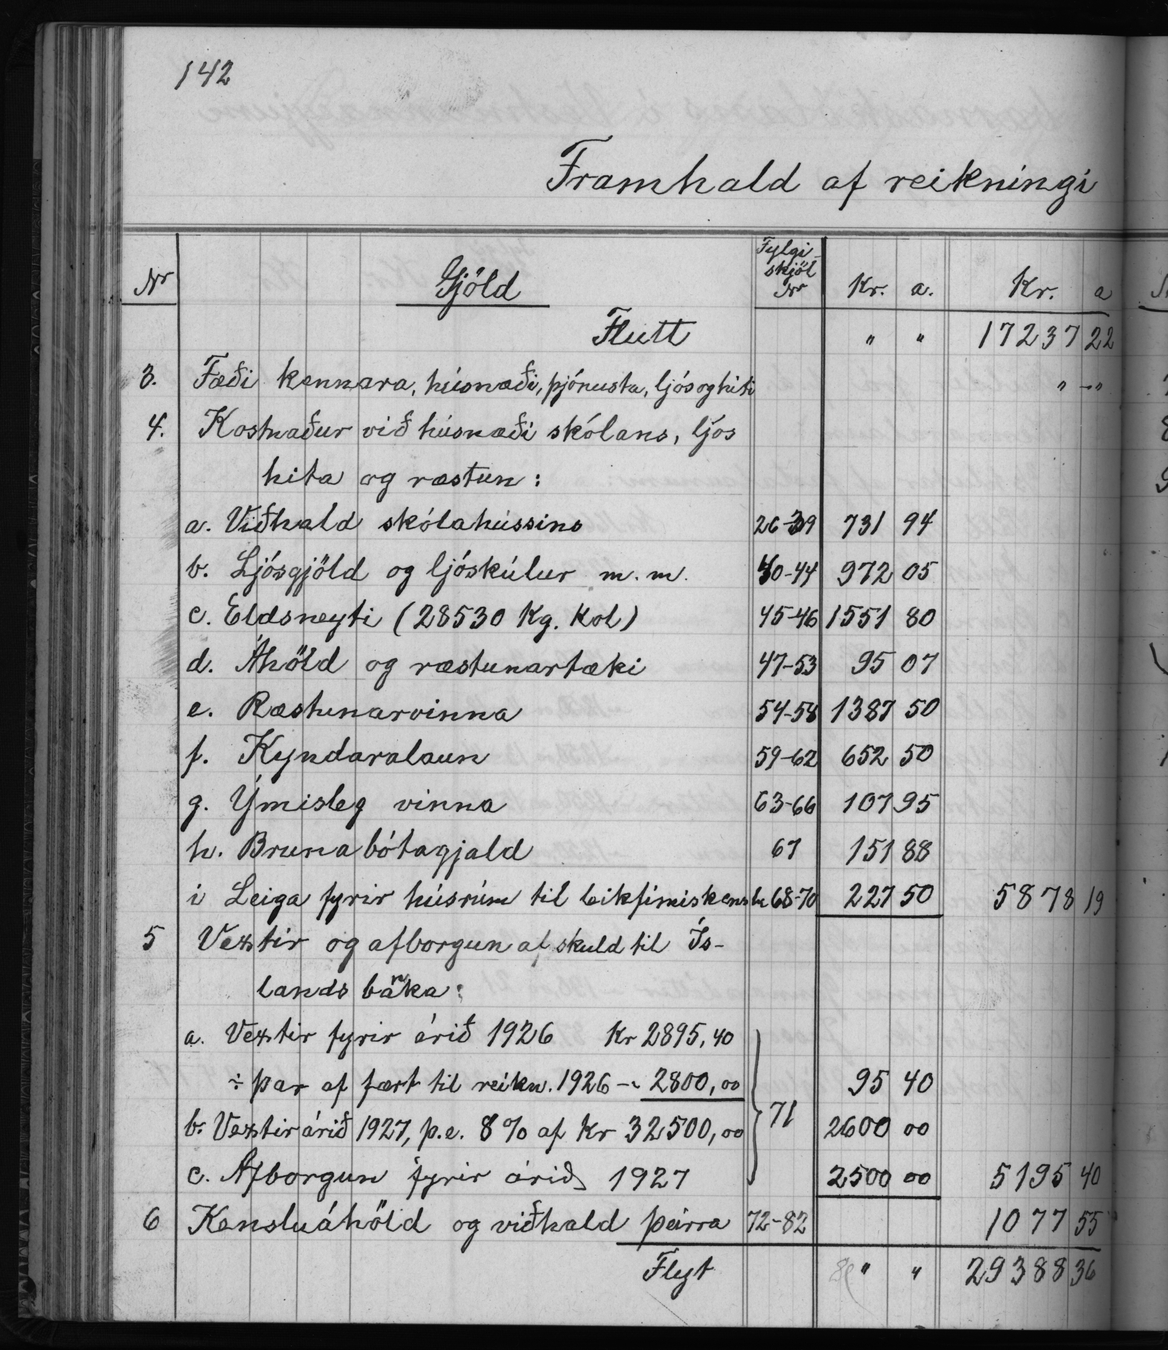 142
Framhald af reikningi
Nr Gjöld Fylgi-skjöl Nr Kr. a. Kr. a
Flutt " " 17237 22
3. Fæði kennara, húsnæði, þjónusta, ljós og hiti " – "
4. Kostnaður við húsnæði skólans, ljós
hita og ræstun:
a. Viðhald skólahússins 26-39 731 94
b. Ljósgjöld og ljóskúlur m.m. 40-44 972 05
c. Eldsneyti (28530 Kg. Kol) 45-46 1551 80
d. Áhöld og ræstunartæki 47-53 95 07
e. Ræstunarvinna 54-58 1387 50
f. Kyndaralaun 59-62 652 50
g. Ýmisleg vinna 63-66 107 95
h. Brunabótagjald 67 151 88
i Leiga fyrir húsrúm til leikfimiskenslu 68-70 227 50 5878 19
5 Vextir og afborgun af skuld til Ís-
lands banka:
a. Vextir fyrir árið 1926 Kr 2895,40
÷ þar af fært til reikn. 1926 – 2800,00 95 40
b. Vextir árið 1927, þ.e. 8% af Kr 32500,00 71 2600 00
c. Afborgun fyrir árið 1927 2500 00 5195 40
6 Kensluáhöld og viðhald þeirra 72-82 1077 55
Flyt " " 29388 36